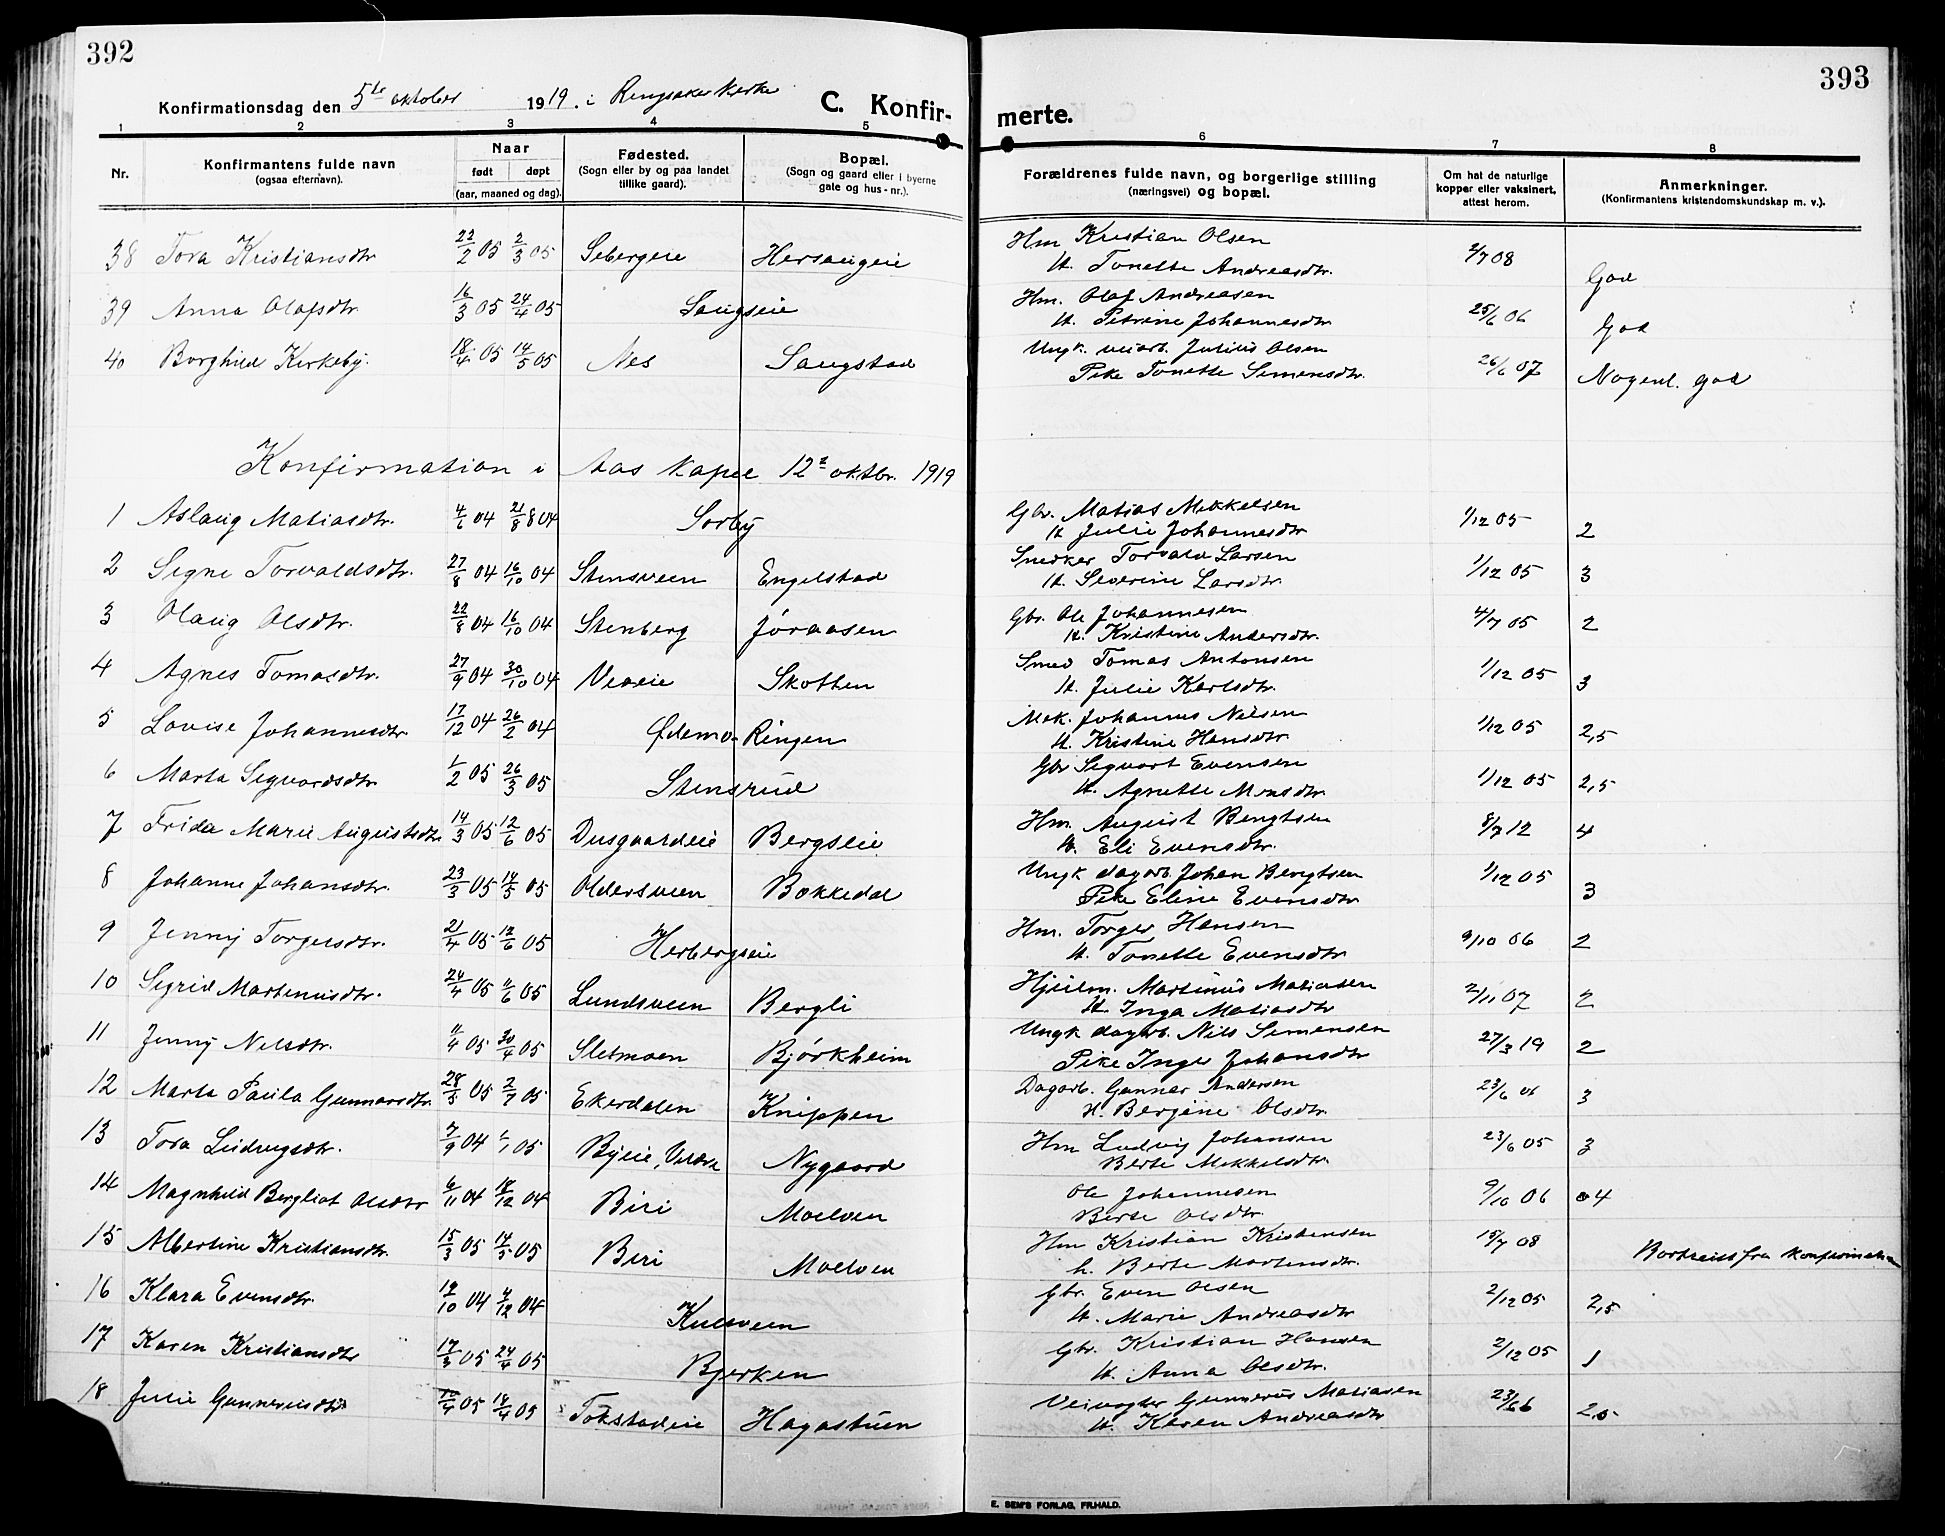 392
Konfirmationsdag den 5te oktober 1919. i Ringsaker kirke
C. Konfir-
1 2 3 4 5
Nr.
Konfirmantens fulde navn
(ogsaa efternavn).
Naar
født døpt
(aar, maaned og dag).
Fødested.
(Sogn eller by og paa landet
tillike gaard).
Bopæl.
(Sogn og gaard eller i byerne
gate og hus-nr.).
38 Tora Kristiansdtr 22/2 05 2/3 05 Sebergeie Hersaugeie
39 Anna Olafsdtr. 16/3 05 24/4 05 Saugseie
40 Borghild Kirkeby. 18/4 05 14/5 05 Nes Saugstad
Konfirmation i Aas kapel 12te oktbr. 1919
1 Aslaug Matiasdtr. 4/6 04 21/8 04 Sorby
2 Signe Torvaldsdtr. 27/8 04 16/10 04 Stensveen Engelstad
3 Olaug Olsdtr. 22/8 04 16/10 04 Stenberg Jøraasen
4 Agnes Tomasdtr. 27/9 04 30/10 04 Skotten
5 Lovise Johannesdtr 17/12 04 26/2 04 Ødemo-Ringen
6 Marta Sigvardsdtr. 1/2 05 26/3 05 Stensrud
7 Frida Marie Augustsdtr. 14/3 05 12/6 05 Dusgaardeie Bergseie
8 Johanne Johansdtr. 23/3 05 14/5 05 Oldersveen Bakkedal
9 Jenny Torgersdtr. 21/4 05 12/6 05 Herbergseie
10 Sigrid Martinusdtr. 24/4 05 11/6 05 Lundsveen Bergli
11 Jenny Nilsdtr. 4/4 05 30/4 05 Sletmoen Bjørkheim
12 Marta Paula Gunnarsdtr. 28/5 05 2/7 05 Ekerdalen Knippen
13 Tora Ludvigsdtr. 7/9 04 1/1 05 Byeie, Nygaard
14 Magnhild Bergliot Olsdtr 6/11 04 18/12 04 Biri Moelven
15 Albertine Kristiansdtr. 15/3 05 14/5 05 Biri Moelven
16 Klara Evensdtr. 12/10 04 4/12 04 Kulsveen
17 Karen Kristiansdtr 17/3 05 24/4 05 Bjerken
18 Julie Gunnerusdtr 05 05 Tokstadeie Hagastuen
393
merte.
6 7 8
Forældrenes fulde navn, og borgerlige stilling
(næringsvei) og bopæl.
Om hat de naturlige
kopper eller vaksinert,
attest herom.
Anmerkninger.
(Konfirmantens kristendomskundskap m. v.).
Hm Kristian Olsen
H. Tonette Andreasdtr. 2/7 08 God
Hm. Olaf Andreasen
H. Petrine Johannesdtr 25/6 06 God
Ungk. veiarb. Julius Olsen
Pike Tonette Simensdtr. 26/6 07 Nogenl. god
Gbr. Matias Mikkelsen
H. Julie Johannesdtr 1/12 05 2
Snedker Torvald Larsen
H. Severine Larsdtr. 1/12 05 3
Gbr. Ole Johannesen
H. Kristine Andersdtr. 4/7 05 2
Smed Tomas Antonsen
H. Julie Karlsdtr. 1/12 05 3
Mek. Johannes Nilsen
H. Kristine Hansdtr. 1/12 05 2,5
Gbr Sigvart Evensen
H. Agnette Monsdtr. 1/12 05 2,5
Hm. August Bengtsen
H. Eli Evensdtr. 8/7 12 4
Ungk dagarb. Johan Bengtsen
Pike Eline Evensdtr 1/12 05 3
Hm. Torger Hansen
H. Tonette Evensdtr 9/10 06 2
Hjulm. Martinus Matiasen
H. Inga Matiasdtr 2/11 07 2
Ungk dagarb. Nils Simensen
Pike Inga Johansdtr 27/3 19 2
Dagarb. Gunnar Andersen
H. Bergine Olsdtr. 23/6 06 3
Hm Ludvig Johansen
Berte Mikkelsdtr. 23/6 05 3
Ole Johannesen
Berte Olsdtr. 9/10 06 4
Hm Kristian Kristensen
h. Berte Martinsdtr. 15/7 08 Bortreist fra konfirmation
Gbr. Even Olsen
H. Marie Andreasdtr 2/12 05 2,5
Gbr. Kristian Hansen
H. Anna Olsdtr. 2/12 05 1
Veivogter Gunnerus Matiasen
H. Karen Andreasdtr 23/6 6 2,5
E. SEM'S FORLAG, FR.HALD.